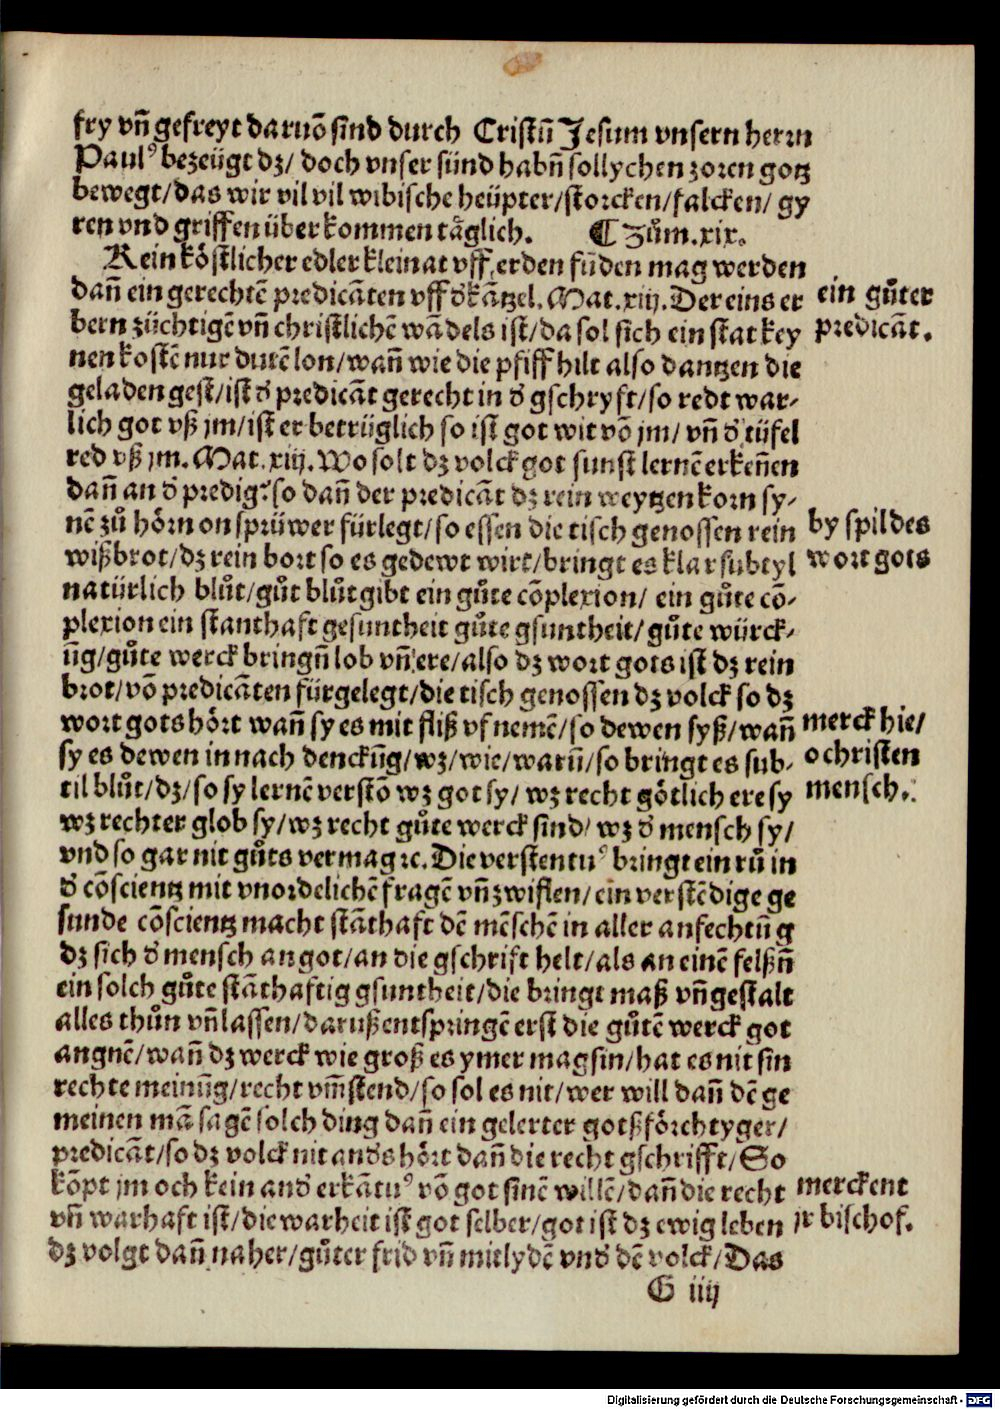 fry vn̄ gefreyt daruō sind durch Cristū Jesum vnsern herrn
Paulꝰ bezeügt dz/ doch vnser sünd habn̄ sollychen zoren gotz
bewegt/das wir vil vil wibische heüpter/storcken/falcken/ gy
ren vnd griffen überkommen täglich. ¶ Zům.xix.
Kein köstlicher edler kleinat vff erden fūden mag werden
dan̄ ein gerechtē predicāten vff d̄ kātzel. Mat.xiij. Der eins er
ein gůter
bern züchtigē vn̄ christlichē wādels ist/da sol sich ein stat key
predicāt.
nen kostē nur durē lon/wan̄ wie die pfiff hilt also dantzen die
geladen gest/ist d̄ predicāt gerecht in d̄ gschryft/so redt war-
lich got vß jm/ist er betrüglich so ist got wit vō jm/ vn̄ d̄ tüfel
red vß jm. Mat.xiij. Wo solt dz volck got sunst lernē erken̄en
dan̄ an d̄ predig? so dan̄ der predicāt dz rein weytzen korn sy-
nē zů hörn on sprüwer fürlegt/so essen die tisch genossen rein
by spil des
wißbrot/dz rein bort so es gedewt wirt/bringt es klar subtyl
wort gots
natürlich blůt/gůt blůt gibt ein gůte cōplexion/ ein gůte cō-
plexion ein stanthaft gesuntheit gůte gsuntheit/ gůte würck-
ūg/gůte werck bringn̄ lob vn̄ ere/also dz wort gots ist dz rein
brot/vō predicāten fürgelegt/die tisch genossen dz volck so dz
wort gots hört wan̄ sy es mit fliß vf nemē/so dewen syß/wan̄
merck hie/
sy es dewen in nach denckūg/wz/wie/warū/so bringt es sub-
o christen
til blůt/dz/so sy lernē verstō wz got sy/ wz recht götlich ere sy
mensch.
wz rechter glob sy/wz recht gůte werck sind/ wz d̄ mensch sy/
vnd so gar nit gůts vermag ꝛc. Die verstentuꝰ bringt ein rů in
d̄ cōscientz mit vnordelichē fragē vn̄ zwiflen/ ein verstēdige ge
sunde cōscientz macht stāthaft dē mēschē in aller anfechtūg
dz sich d̄ mensch an got/an die gschrift helt/als an einē felßn̄
ein solch gůte stāthaftig gsuntheit/die bringt maß vn̄ gestalt
alles thůn vn̄ lassen/daruß entspringē erst die gůtē werck got
angnē/wan̄ dz werck wie groß es ymer mag sin/hat es nit sin
rechte meinūg/recht vm̄stend/so sol es nit/wer will dan̄ dē ge
meinen mā sagē solch ding dan̄ ein gelerter gotßförchtyger/
predicāt/so dz volck nit and̄s hört dan̄ die recht gschrifft/So
kōpt jm och kein and̄ erkātuꝰ vō got sinē willē/dan̄ die recht
merckent
vn̄ warhaft ist/die warheit ist got selber/got ist dz ewig leben
jr bischof.
dz volgt dan̄ naher/gůter frid vn̄ mitlydē vnd̄ dē volck/Das
G iiij
Digitalisierung gefördert durch die Deutsche Forschungsgemeinschaft - DFG